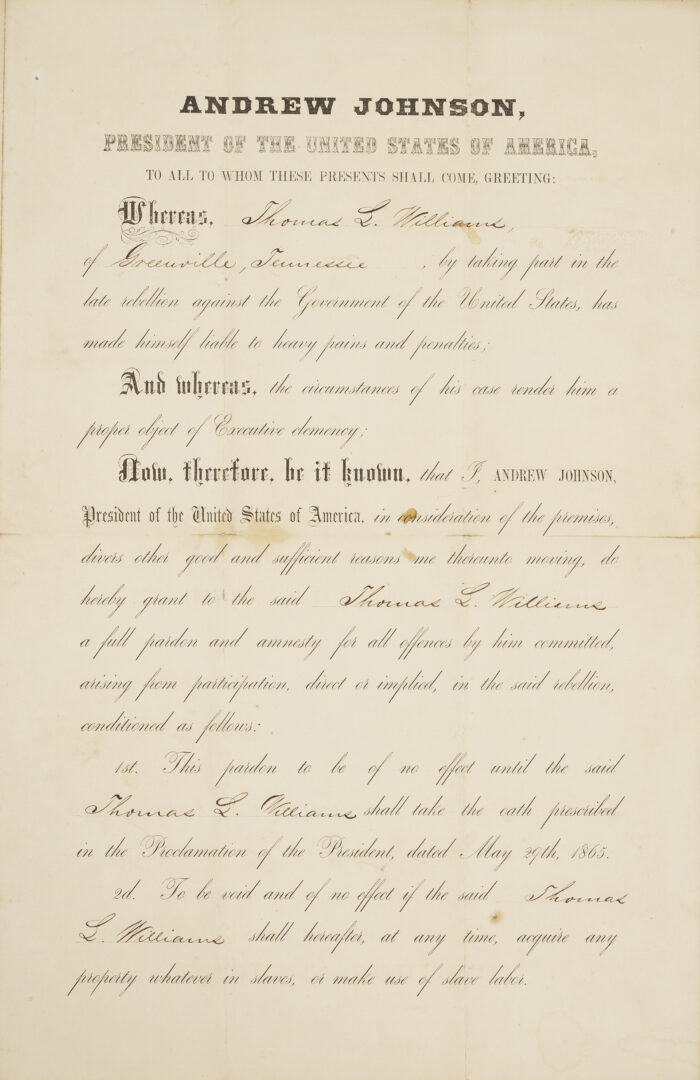 ANDREW JOHNSON,
PRESIDENT OF THE UNITED STATES OF AMERICA,
TO ALL TO WHOM THESE PRESENTS SHALL COME, GREETING:
Whereas, Thomas L. Williams,
of Greenville, Tennessee , by taking part in the
late rebellion against the Government of the United States, has
made himself liable to heavy pains and penalties;
And whereas, the circumstances of his case render him a
proper object of Executive clemency;
Now, therefore, be it known, that I, ANDREW JOHNSON,
President of the United States of America, in consideration of the premises,
divers other good and sufficient reasons me thereunto moving, do
hereby grant to the said Thomas L. Williams
a full pardon and amnesty for all offences by him committed,
arising from participation, direct or implied, in the said rebellion,
conditioned as follows:
1st. This pardon to be of no effect until the said
Thomas L. Williams shall take the oath prescribed
in the Proclamation of the President, dated May 29th, 1865.
2d. To be void and of no effect if the said Thomas
L. Williams shall hereafter, at any time, acquire any
property whatever in slaves, or make use of slave labor.